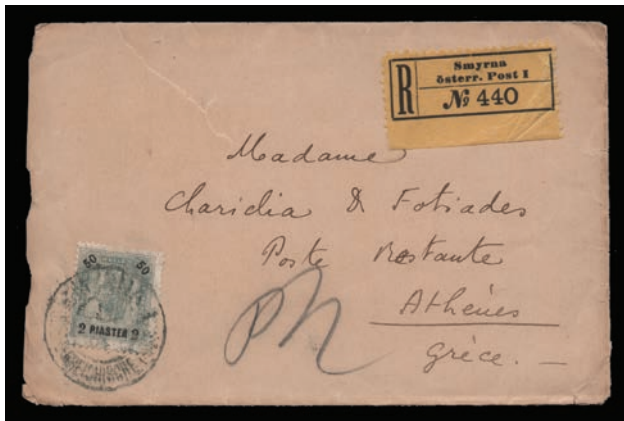 R
Smyrna
österr. Post I
№ 440
Madame
Charidia D. Fotiades
Poste Restante
Athènes
Grèce. —
50 50
2 PIASTER 2